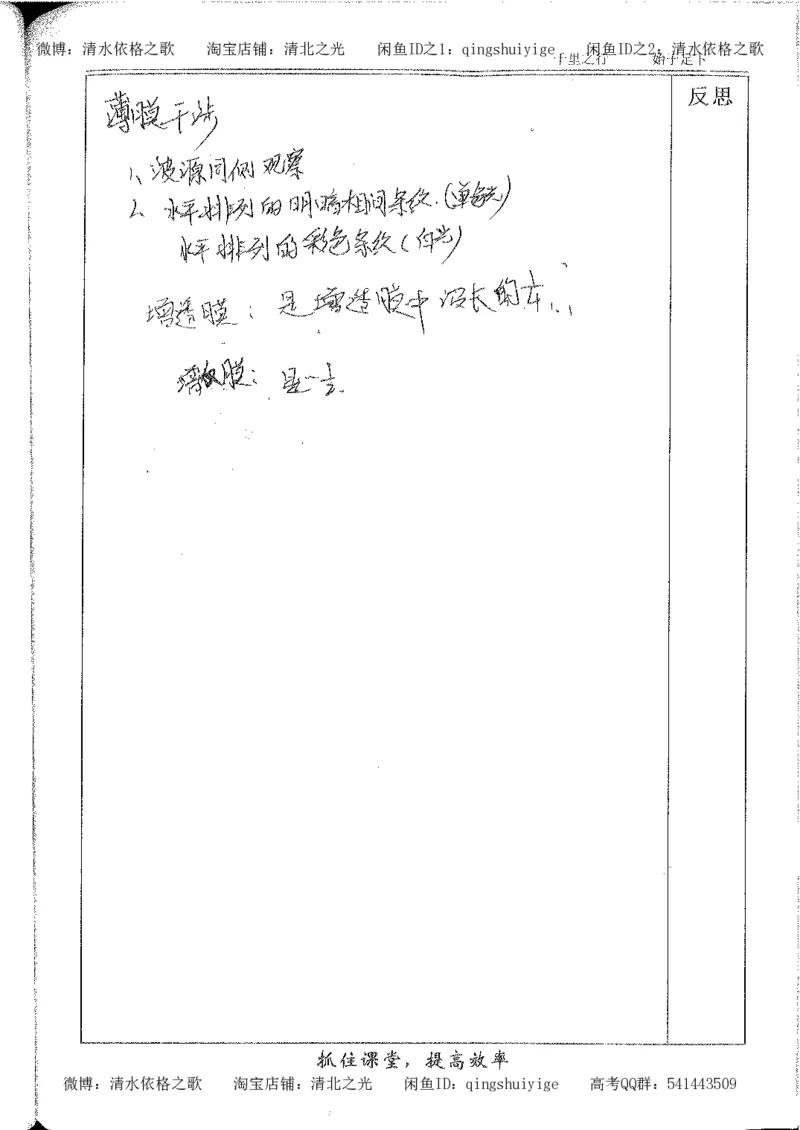 微博：清水依格之歌 淘宝店铺：清北之光 闲鱼ID之1：qingshuiyige 闲鱼ID之2：清水依格之歌
千里之行 始于足下
反思
薄膜干涉
1、波源同侧观察
2、水平排列的明暗相间条纹.(单色光)
水平排列的彩色条纹(白光)
增透膜：是增透膜中波长的¼
膜：是
抓住课堂，提高效率
微博：清水依格之歌 淘宝店铺：清北之光 闲鱼ID：qingshuiyige 高考QQ群：541443509